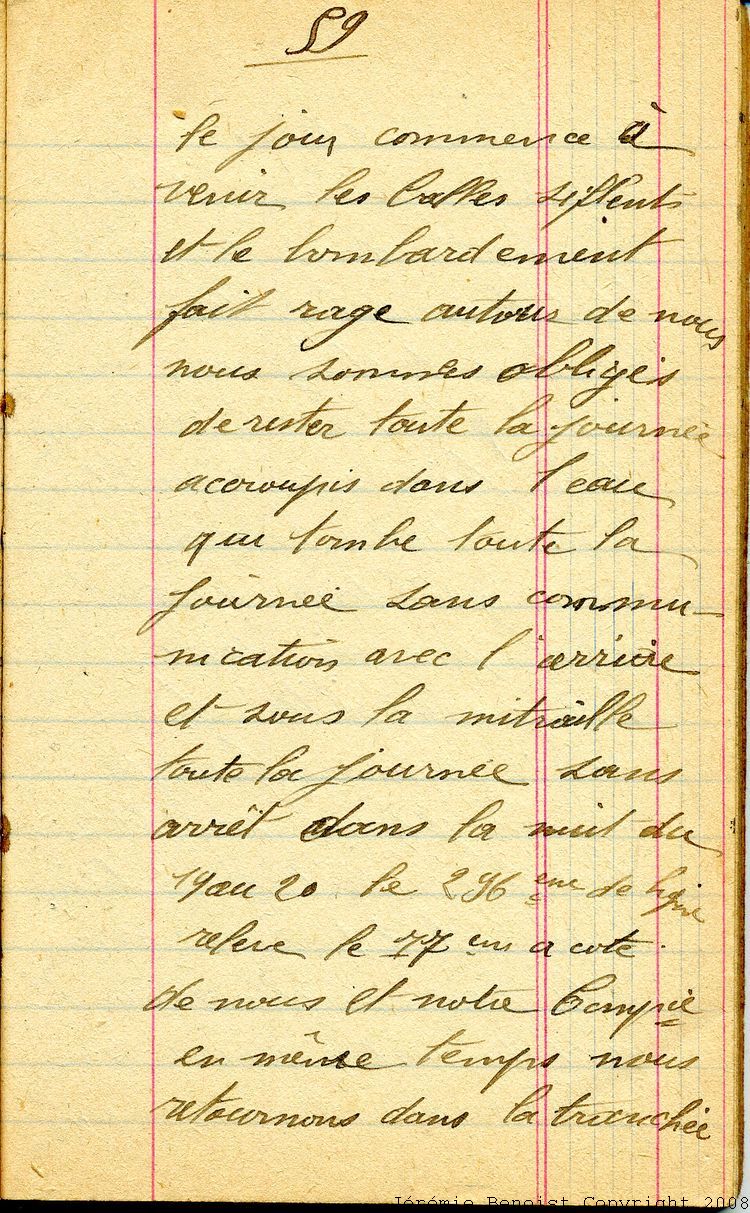 59
le jour commence à
venir les balles siflents
et le bombardement
fait rage autour de nous
nous sommes obligés
de rester toute la journée
accroupis dans l'eau
qui tombe toute la
journée sans commu-
nication avec l'arrière
et sous la mitraille
toute la journée sans
arrêt dans la nuit du
19 au 20 le 296 eme de ligne
releve le 77 em a coté
de nous et notre Compie
en même temps nous
retournons dans la tranchée
Jérémie Benoist Copyright 2008